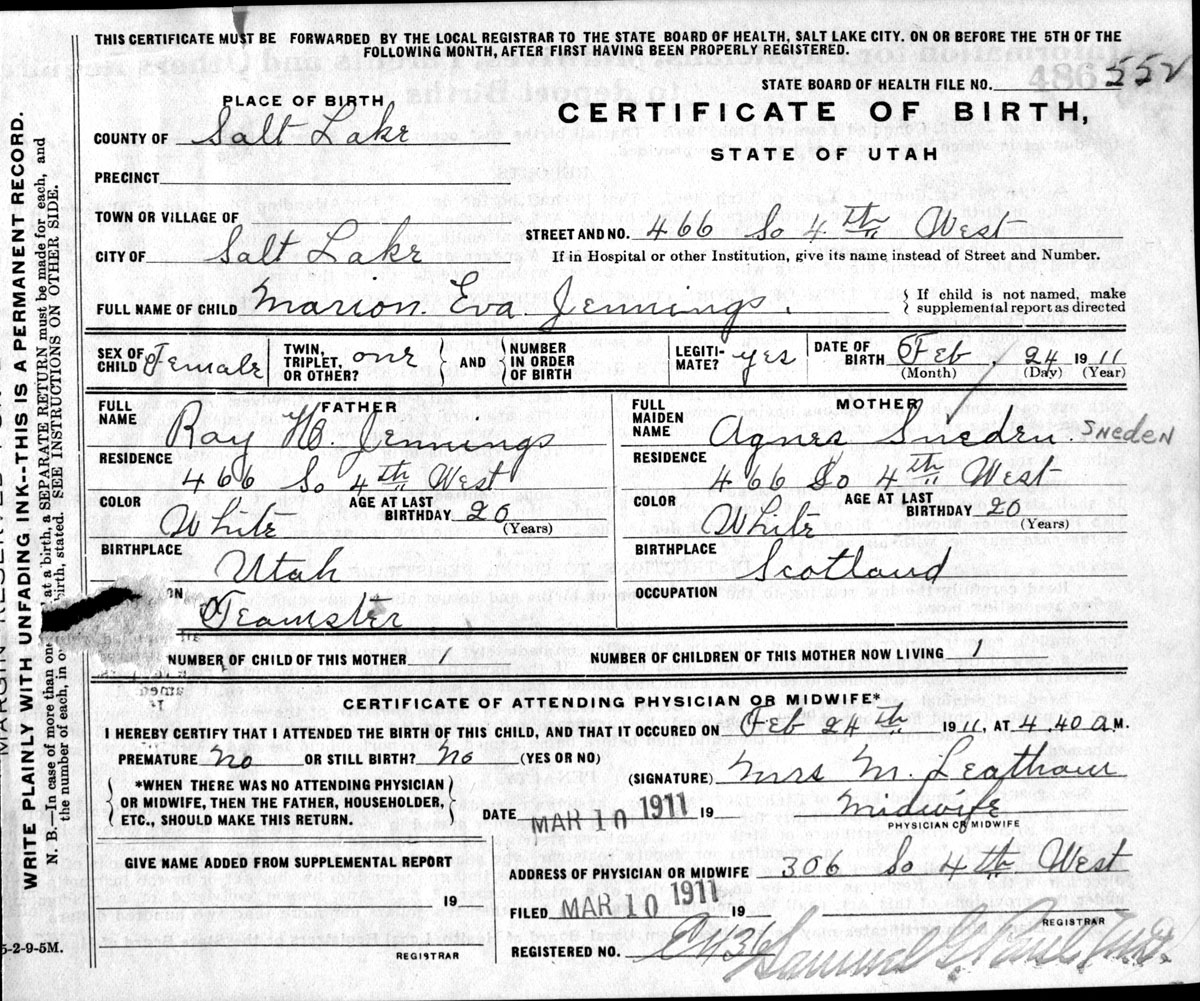 THIS CERTIFICATE MUST BE FORWARDED BY THE LOCAL REGISTRAR TO THE STATE BOARD OF HEALTH, SALT LAKE CITY. ON OR BEFORE THE 5TH OF THE
FOLLOWING MONTH, AFTER FIRST HAVING BEEN PROPERLY REGISTERED.
STATE BOARD OF HEALTH FILE NO. 552
486
PLACE OF BIRTH
CERTIFICATE OF BIRTH,
COUNTY OF Salt Lake
STATE OF UTAH
PRECINCT
TOWN OR VILLAGE OF
STREET AND NO. 466 So 4th West
CITY OF Salt Lake
If in Hospital or other Institution, give its name instead of Street and Number.
FULL NAME OF CHILD Marion Eva Jennings.
{ If child is not named, make
supplemental report as directed
SEX OF CHILD Female
TWIN, TRIPLET, OR OTHER? one } AND { NUMBER IN ORDER OF BIRTH
LEGITI-MATE? yes
DATE OF BIRTH Feb 24 1911
(Month) (Day) (Year)
FATHER
FULL NAME Ray H. Jennings
RESIDENCE
466 So 4th West
COLOR White AGE AT LAST BIRTHDAY 20 (Years)
BIRTHPLACE
Utah
ON
Teamster
MOTHER
FULL MAIDEN NAME Agnes Sneden. SNEDEN
RESIDENCE
466 So 4th West
COLOR White AGE AT LAST BIRTHDAY 20 (Years)
BIRTHPLACE
Scotland
OCCUPATION
NUMBER OF CHILD OF THIS MOTHER 1 NUMBER OF CHILDREN OF THIS MOTHER NOW LIVING 1
CERTIFICATE OF ATTENDING PHYSICIAN OR MIDWIFE*
I HEREBY CERTIFY THAT I ATTENDED THE BIRTH OF THIS CHILD, AND THAT IT OCCURED ON Feb 24th 1911, AT 4 40 a M.
PREMATURE No OR STILL BIRTH? No (YES OR NO)
{ *WHEN THERE WAS NO ATTENDING PHYSICIAN
OR MIDWIFE, THEN THE FATHER, HOUSEHOLDER,
ETC., SHOULD MAKE THIS RETURN. }
(SIGNATURE) Mrs M. Leatham
DATE MAR 10 1911 19 Midwife
PHYSICIAN OR MIDWIFE
GIVE NAME ADDED FROM SUPPLEMENTAL REPORT
19
REGISTRAR
ADDRESS OF PHYSICIAN OR MIDWIFE 306 So 4th West
FILED MAR 10 1911 19
REGISTRAR
REGISTERED NO. Samuel G. Paul
5-2-9-5M.
WRITE PLAINLY WITH UNFADING INK--THIS IS A PERMANENT RECORD.
N. B.—In case of more than one at a birth, a SEPARATE RETURN must be made for each, and
the number of each, in o birth, stated. SEE INSTRUCTIONS ON OTHER SIDE.